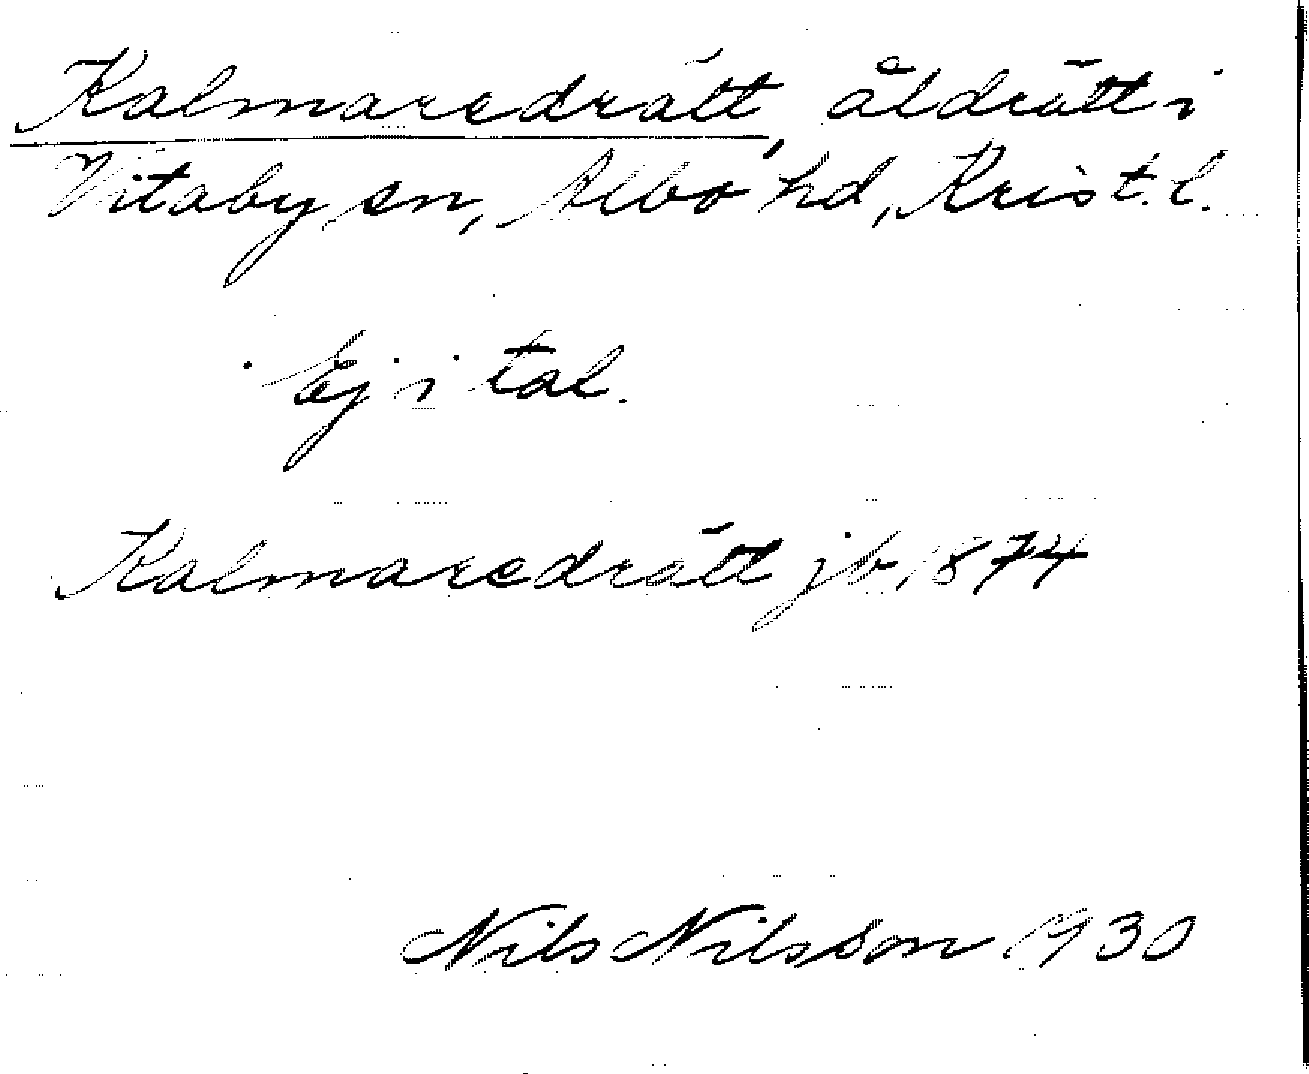 Kalmaredrätt, åldrätt i
Vitaby sn, Albo hd, Krist. l.
Ej i tal.
Kalmaredrätt jb 1874
Nils Nilsson 1930